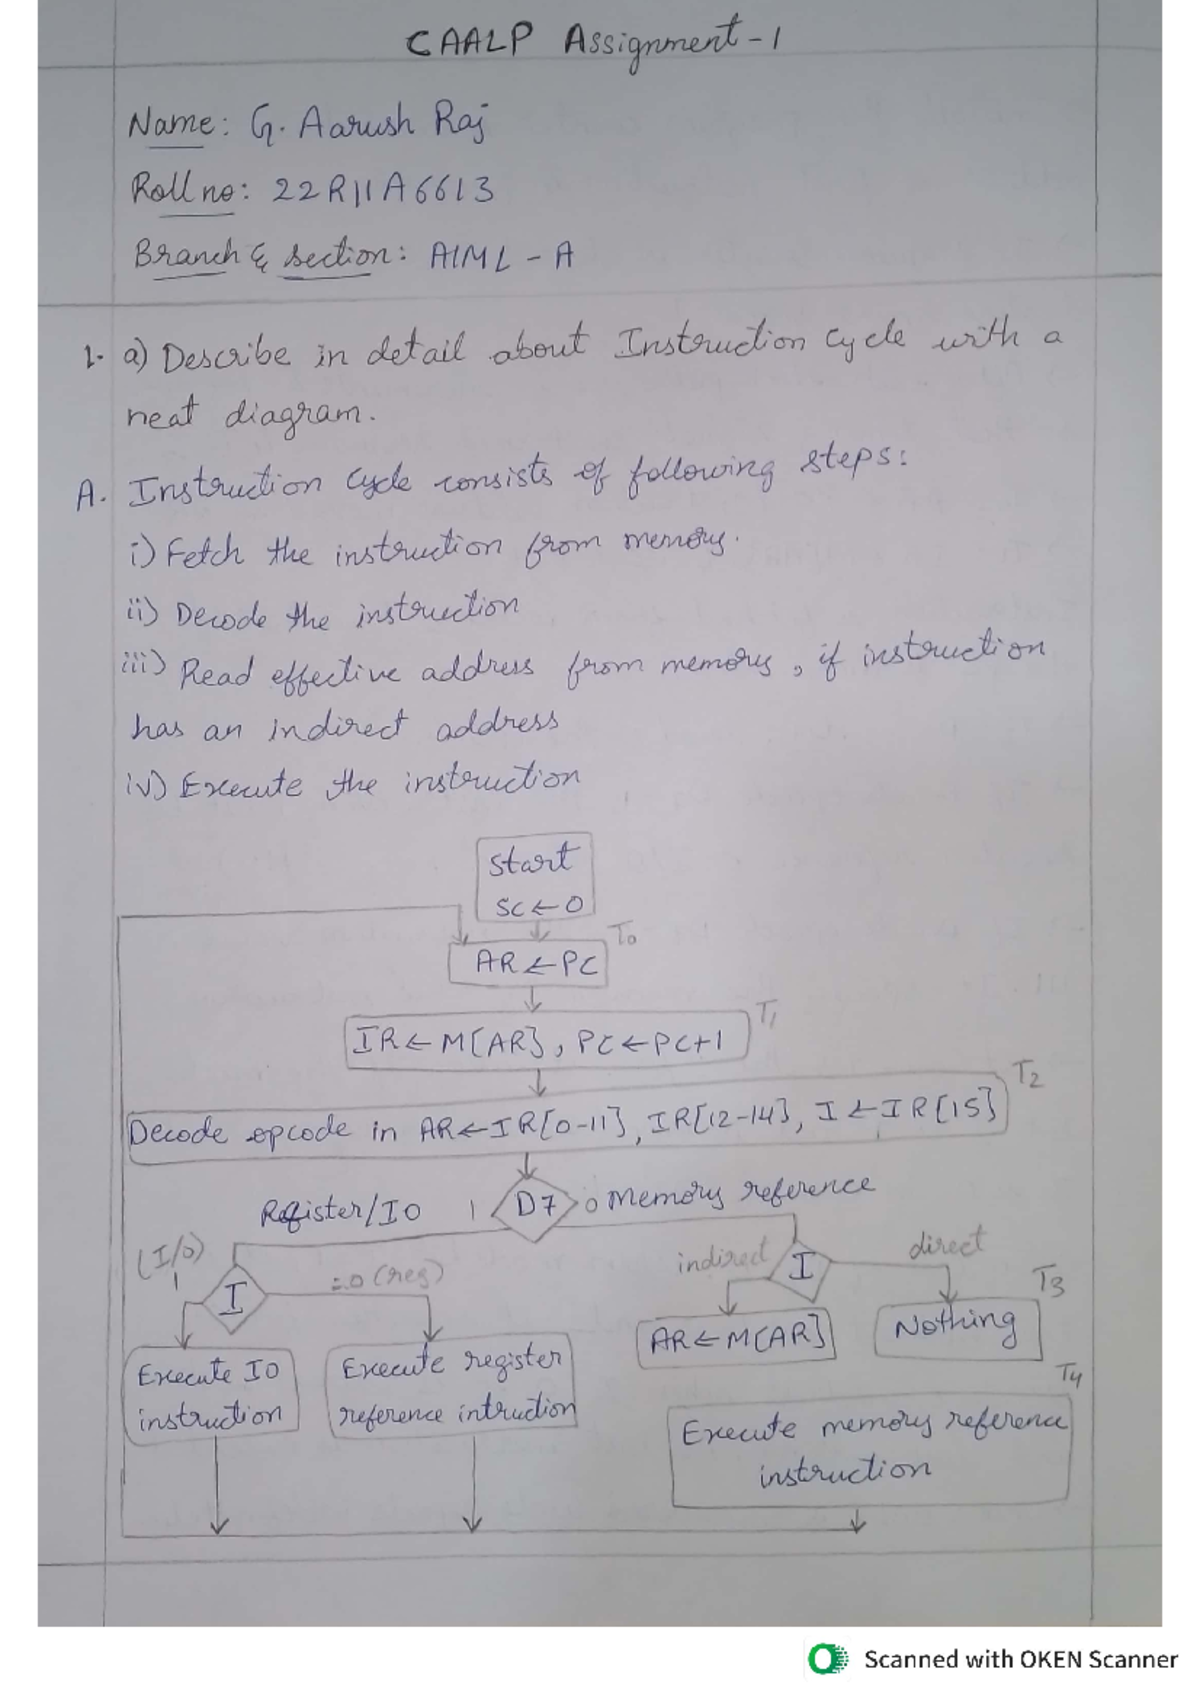 CAALP Assignment-1
Name: G. Aarush Raj
Roll no: 22R11A6613
Branch & section: AIML - A
1. a) Describe in detail about Instruction Cycle with a
neat diagram.
A. Instruction Cycle consists of following steps:
i) Fetch the instruction from memory.
ii) Decode the instruction
iii) Read effective address from memory, if instruction
has an indirect address
iv) Execute the instruction
Start
SC ← 0
T0
AR ← PC
T1
IR ← M[AR], PC ← PC+1
T2
Decode opcode in AR ← IR[0-11], IR[12-14], I ← IR[15]
Register/IO 1 D7 0 Memory reference
(I/O)
1
I
=0 (reg)
indirect
I
direct
T3
AR ← M[AR]
Nothing
Execute IO
instruction
Execute register
reference intruction
T4
Execute memory reference
instruction
Scanned with OKEN Scanner